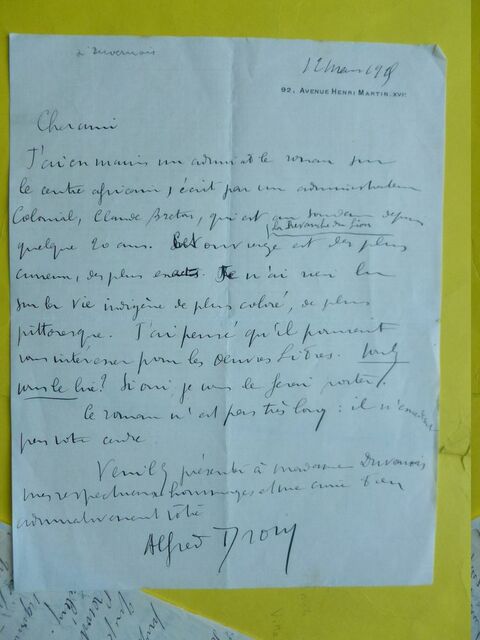 à Duvernois
12 mars 19
92, AVENUE HENRI MARTIN. XVIᵉ
Cher ami
J'ai en mains un admirable roman sur
le centre africain, écrit par un administrateur
Colonial, Claude Breton, qui est au Soudan depuis
quelque 20 ans. Cet ouvrage est des plus
la Revanche du Lion
curieux, des plus exacts. Je n'ai rien lu
sur la vie indigène de plus coloré, de plus
pittoresque. J'ai pensé qu'il pourrait
vous intéresser pour les Oeuvres Libres. Voulez
vous le lire? Si oui je vous le ferai porter.
Le roman n'est pas très long : il n'excédera
pas votre cadre
Veuillez présenter à Madame Duvernois
mes respectueux hommages et me croire bien
admirativement vôtre
Alfred Droin